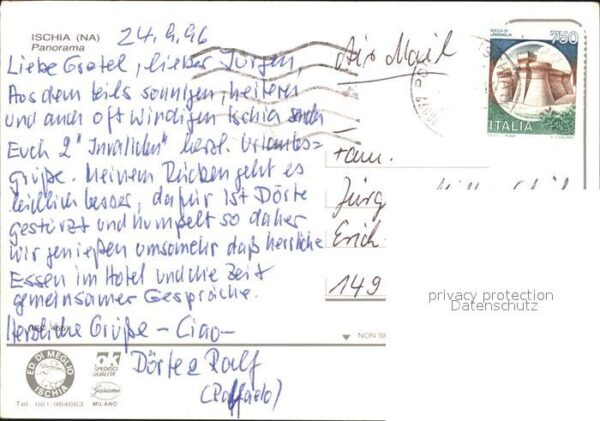 ISCHIA (NA)
Panorama
24.9.96
Liebe Gretel, lieber Jürgen,
Aus dem teils sonnigen, heiteren
und auch oft windigen Ischia senden
Euch 2 "Invaliden" herzl. Urlaubs-
grüße. Meinem Rücken geht es
leidlich besser, dafür ist Dörte
gestürzt und humpelt so daher
wir genießen umsomehr das herrliche
Essen im Hotel und die Zeit
gemeinsamer Gespräche.
Herzliche Grüße - Ciao -
Dörte & Ralf
(Raffaelo)
Air Mail
ROCCA DI
URBISAGLIA
750
ITALIA
Fam.
Jürg
Erich-
149
privacy protection
Datenschutz
NON SC
ED. DI MEGLIO
ISCHIA
Tel. 081-984663
ok
SPEDIRCI
QUALITÀ
Garami
MILANO